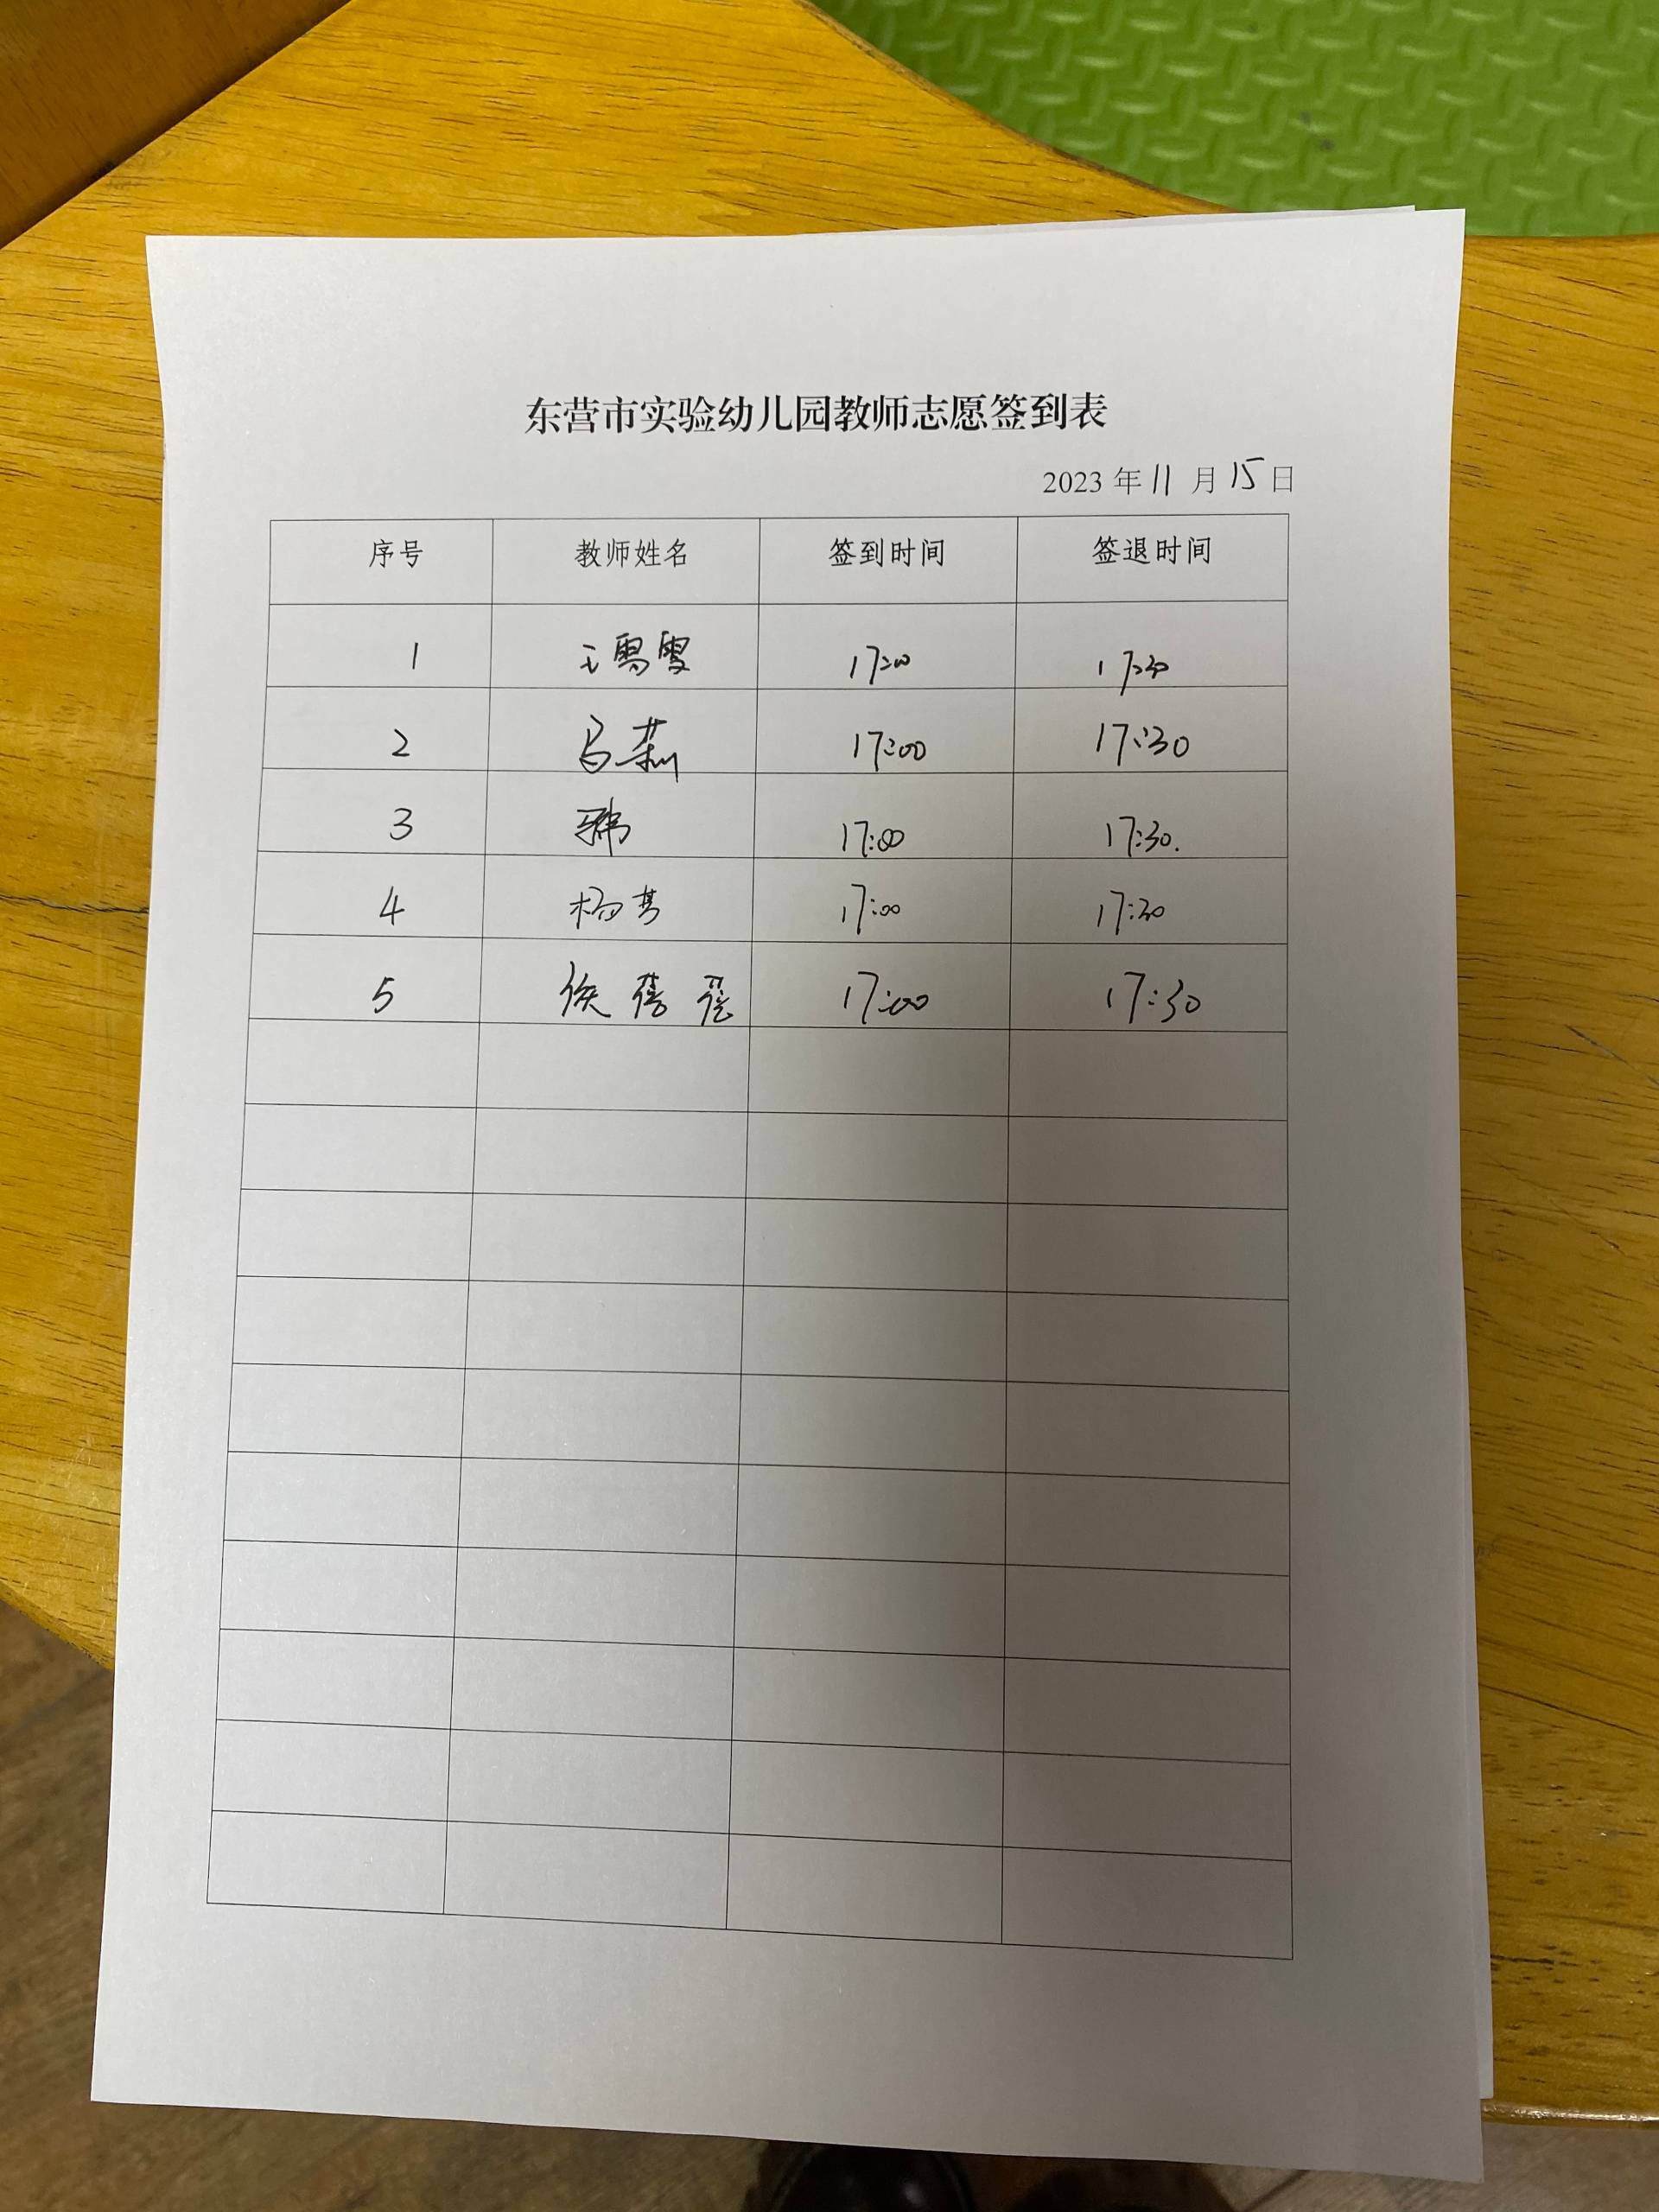 东营市实验幼儿园教师志愿签到表
2023 年 11 月 15 日
序号 教师姓名 签到时间 签退时间
1 王雪雯 17:00 17:30
2 马莉 17:00 17:30
3 17:00 17:30.
4 杨梦 17:00 17:30
5 侯蓓蓓 17:00 17:30